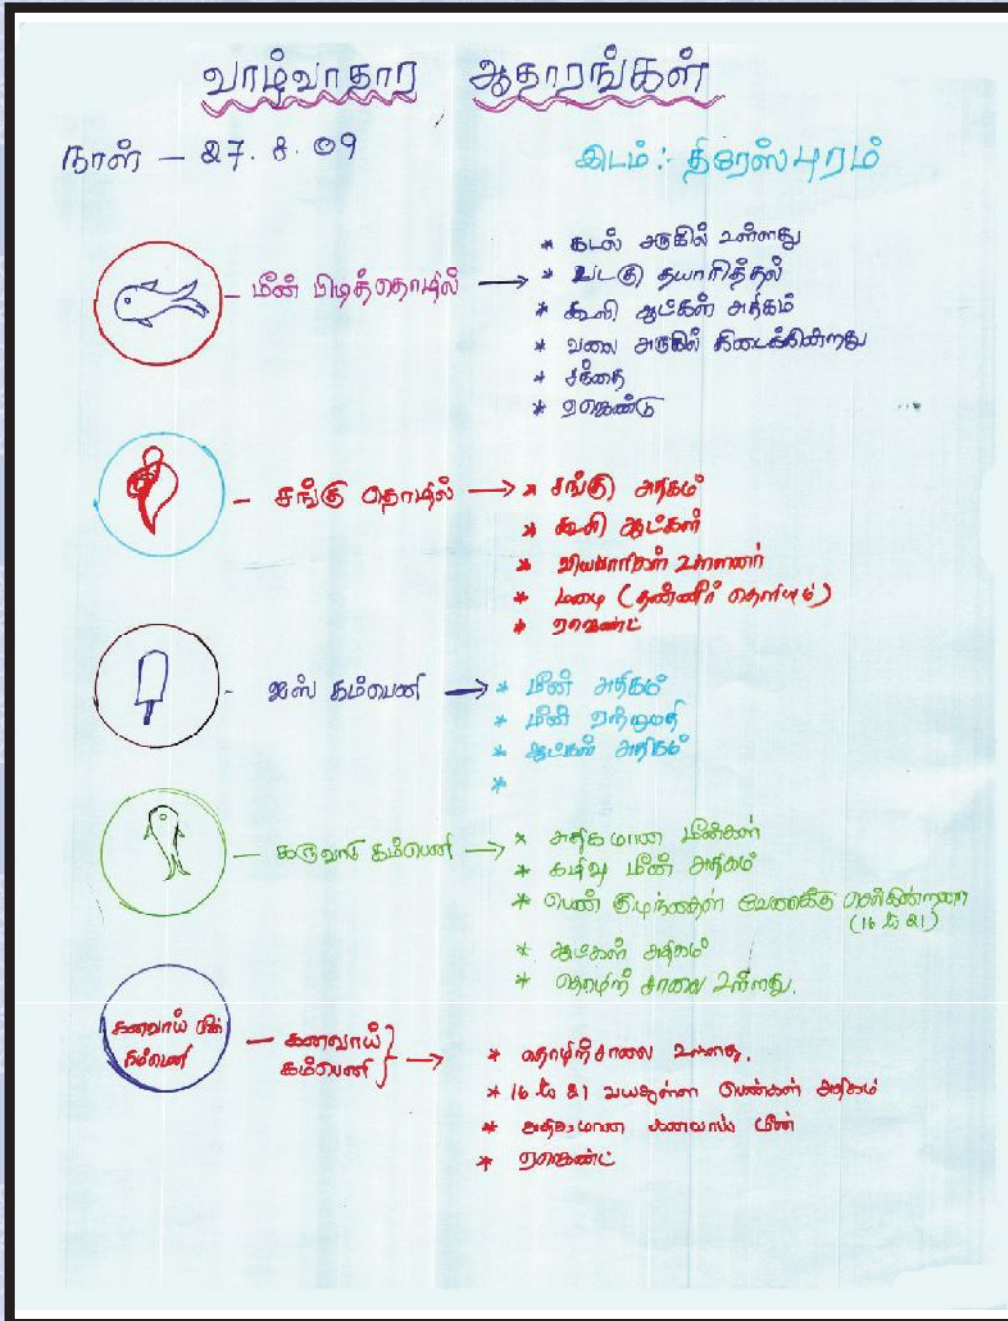 வாழ்வாதார ஆதாரங்கள்
நாள் – 27. 8. 09
இடம் :- திரேஸ்புரம்
– மீன் பிடித்தொழில் → * கடல் அருகில் உள்ளது
* படகு தயாரித்தல்
* கூலி ஆட்கள் அதிகம்
* வலை அருகில் கிடைக்கின்றது
* சந்தை
* ஏஜெண்டு
– சங்கு தொழில் → * சங்கு அதிகம்
* கூலி ஆட்கள்
* வியபாரிகள் உள்ளனர்
* மழை (தண்ணீர் தெளியும்)
* ஏஜெண்ட்
- ஐஸ் கம்பெனி → * மீன் அதிகம்
* மீன் ஏற்றுமதி
* ஆட்கள் அதிகம்
*
– கருவாடு கம்பெனி → * அதிகமான மீன்கள்
* கழிவு மீன் அதிகம்
* பெண் குழந்தைகள் வேலைக்கு
(16 to 21)
* ஆட்கள் அதிகம்
* தொழிற் சாலை உள்ளது.
கணவாய் மீன்
கம்பெனி
– கணவாய்
கம்பெனி } → * தொழிற்சாலை உள்ளது.
* 16 to 21 வயதுள்ள பெண்கள் அதிகம்
* அதிகமான கணவாய் மீன்
* ஏஜெண்ட்